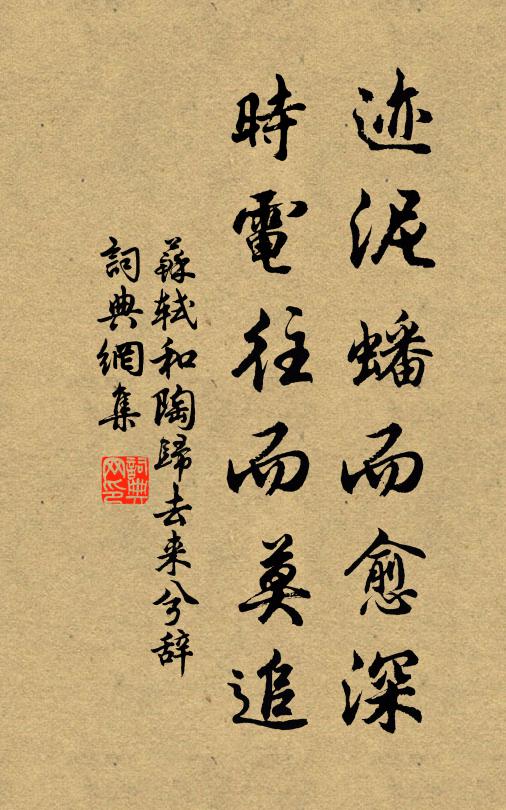 迹泥蟠而愈深
時電往而莫追
蘇軾和陶歸去来兮辞
詞典網集
詞典
网印